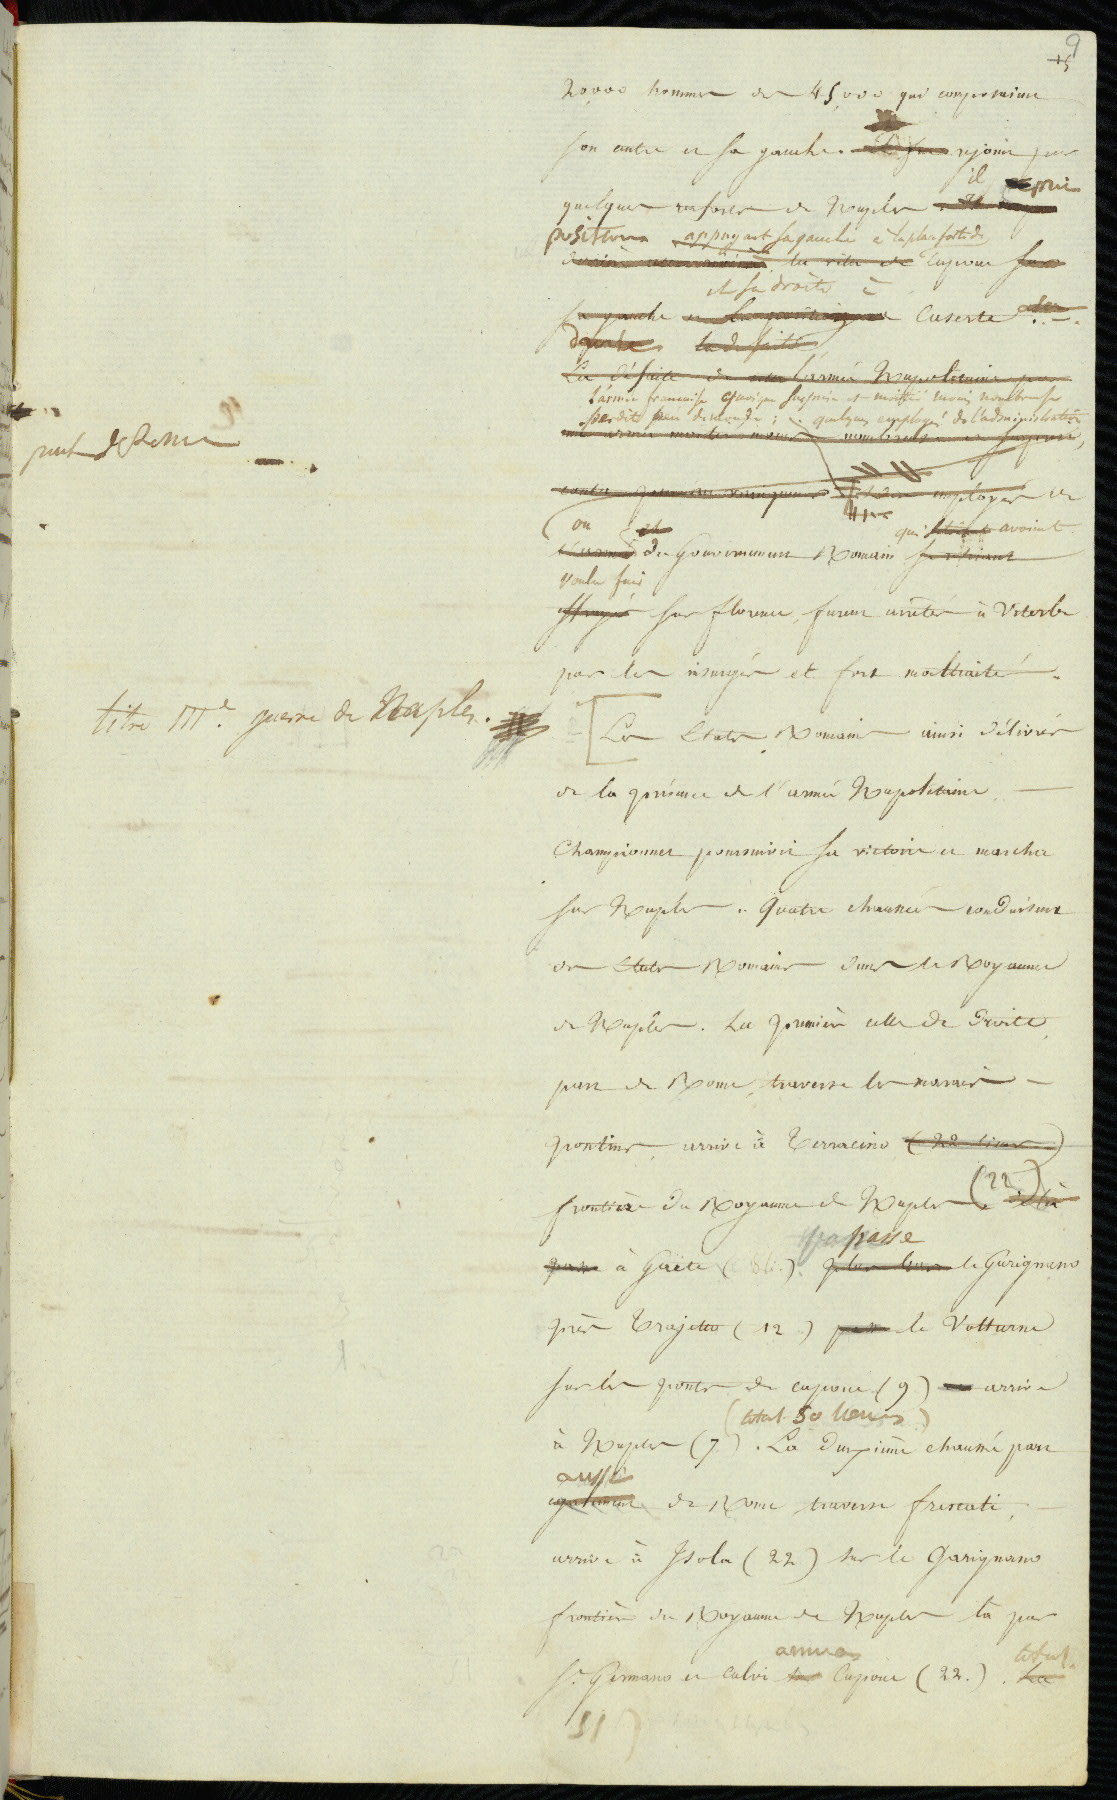 9
20,000 hommes des 45,000 qui composaient
son centre et sa gauche. Il fut rejoint par
quelques renforts de Naples il prit
position appuyant sa gauche à la place forte de
Capoue
et sa droite à
sa gauche et Caserte
La défaite de l'armée Napolitaine par
l'armée française quoique surprise et moitié moins nombreuse
perdit peu de monde ; quelques employés de l'administration
une armée moitié moins nombreuse et surprise,
employés et
port de Rome
ou
du Gouvernement Romain qui avaient
voulu fuir
sur Florence, furent arrêtés à Viterbe
par les insurgés et fort maltraités.
titre III.e guerre de Naples.
Les Etats Romains ainsi délivrés
de la présence de l'armée Napolitaine
Championnet poursuivit sa victoire et marcha
sur Naples. Quatre chaussées conduisent
des Etats Romains dans le Royaume
de Naples. La première celle de droite
part de Rome, traverse les marais
pontins, arrive à Terracine (22 lieues)
frontière du Royaume de Naples (22)
passe
à Gaëte (8 li.) le Garignano
près Trajetto (12) le Volturne
sur les ponts de Capoue (9) arrive
(total 50 lieues)
à Naples (7). La deuxième chaussée part
aussi
egalement de Rome traverse frescati,
arrive à Isola (22) sur le Garignano
frontière du Royaume de Naples là par
arrive à
St. Germano et Calvi Capoue (22.). La
total
51)